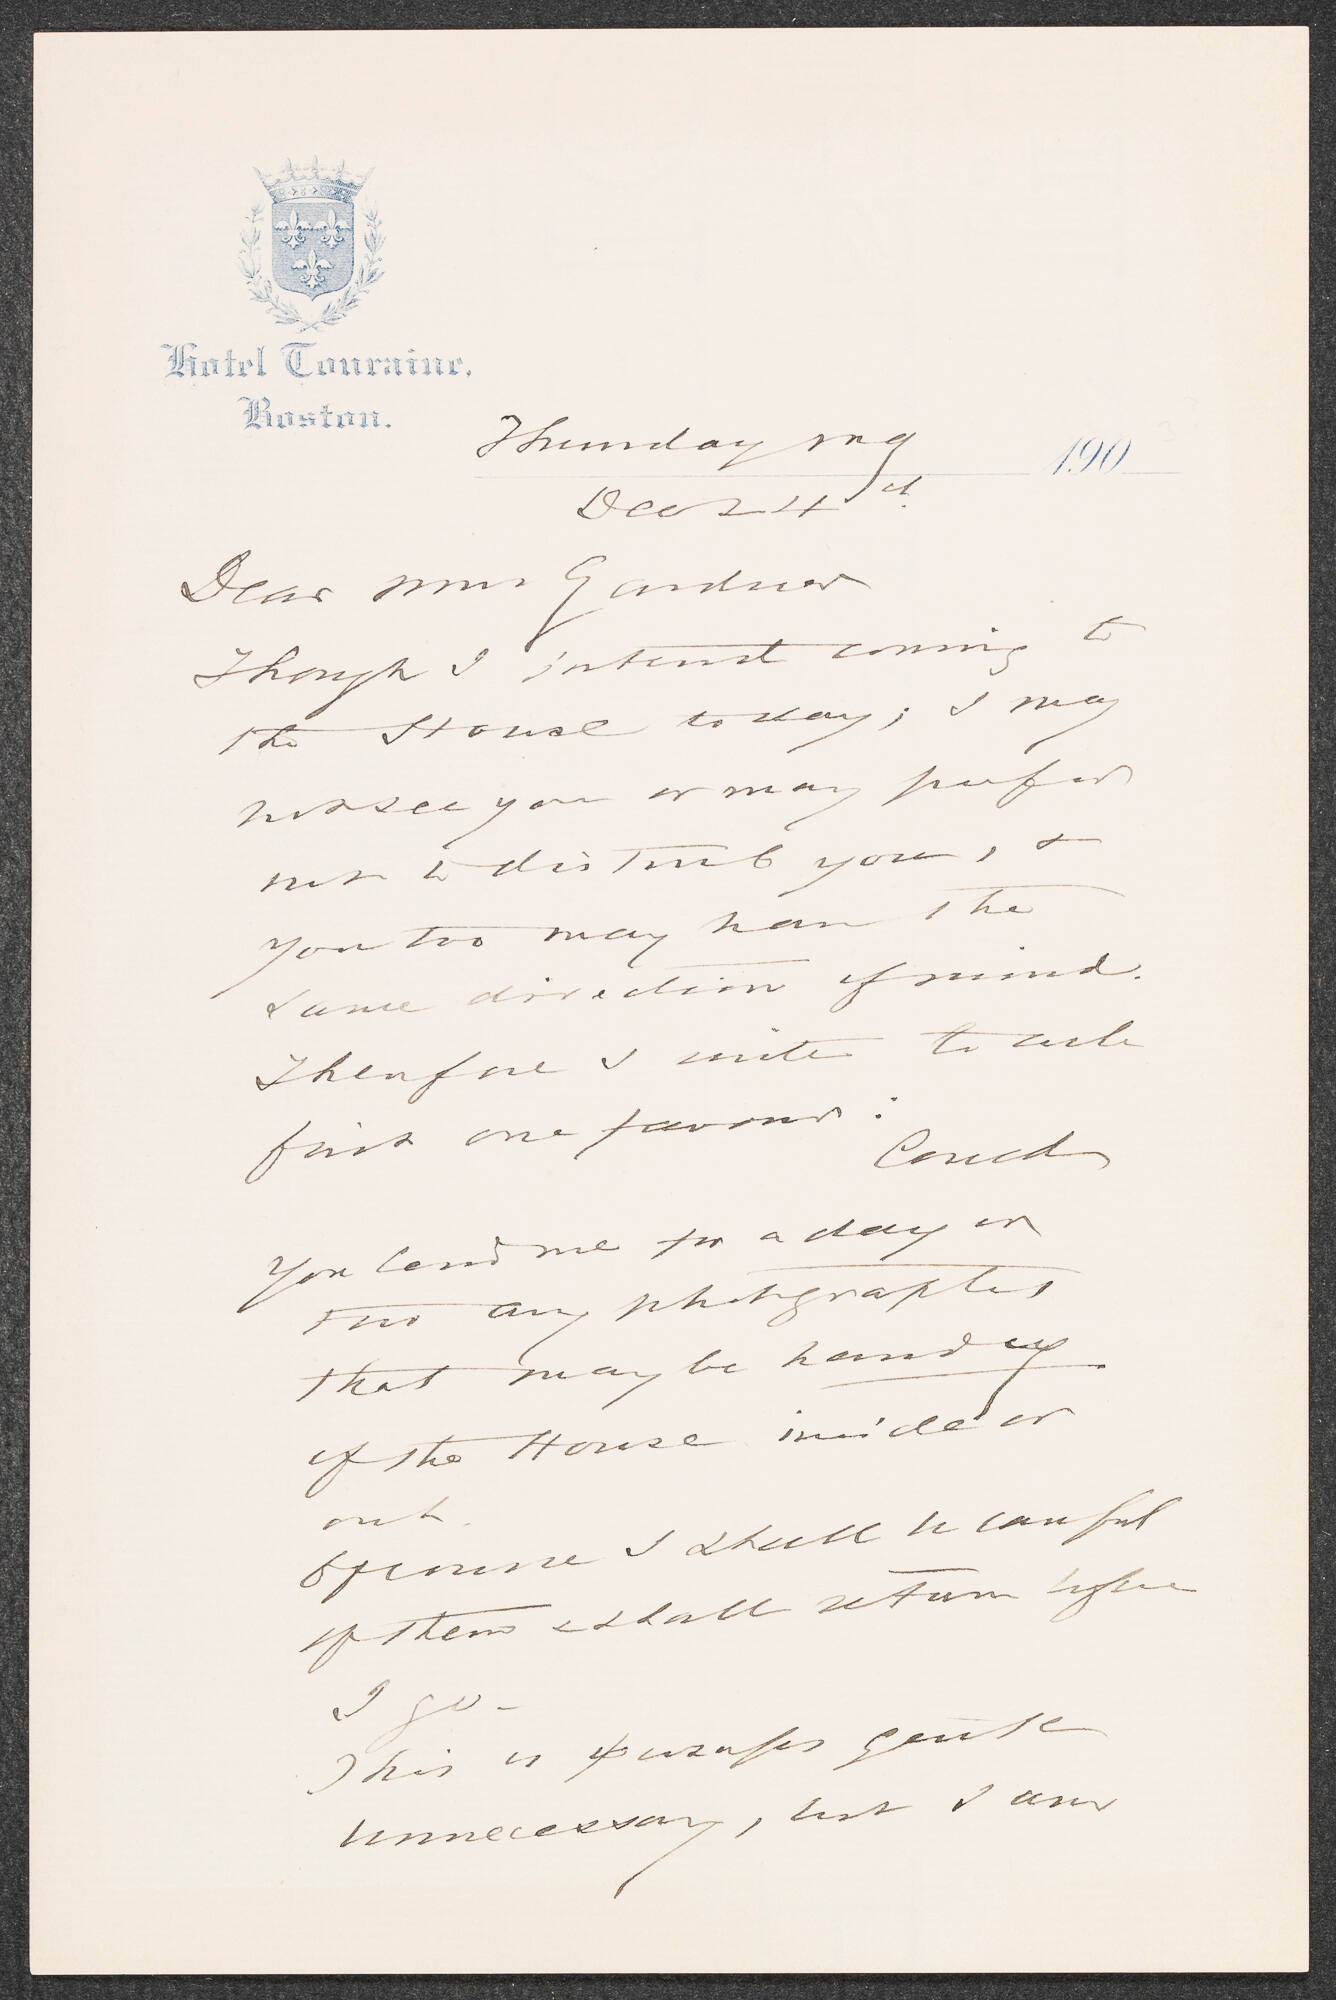 Hotel Touraine.
Boston.
Thursday mg
190 3
Dec 24th
Dear Mrs Gardner
Though I intend coming to
the House today; I may
not see you or may prefer
not to disturb you, &
you too may have the
same direction of mind.
Therefore I write to ask
first one favour:
Could
you lend me for a day or
two any photographs
that may be handy
of the House inside or
out.
Of course I shall be careful
of them & shall return before
I go-
This is perhaps quite
unnecessary, but I am